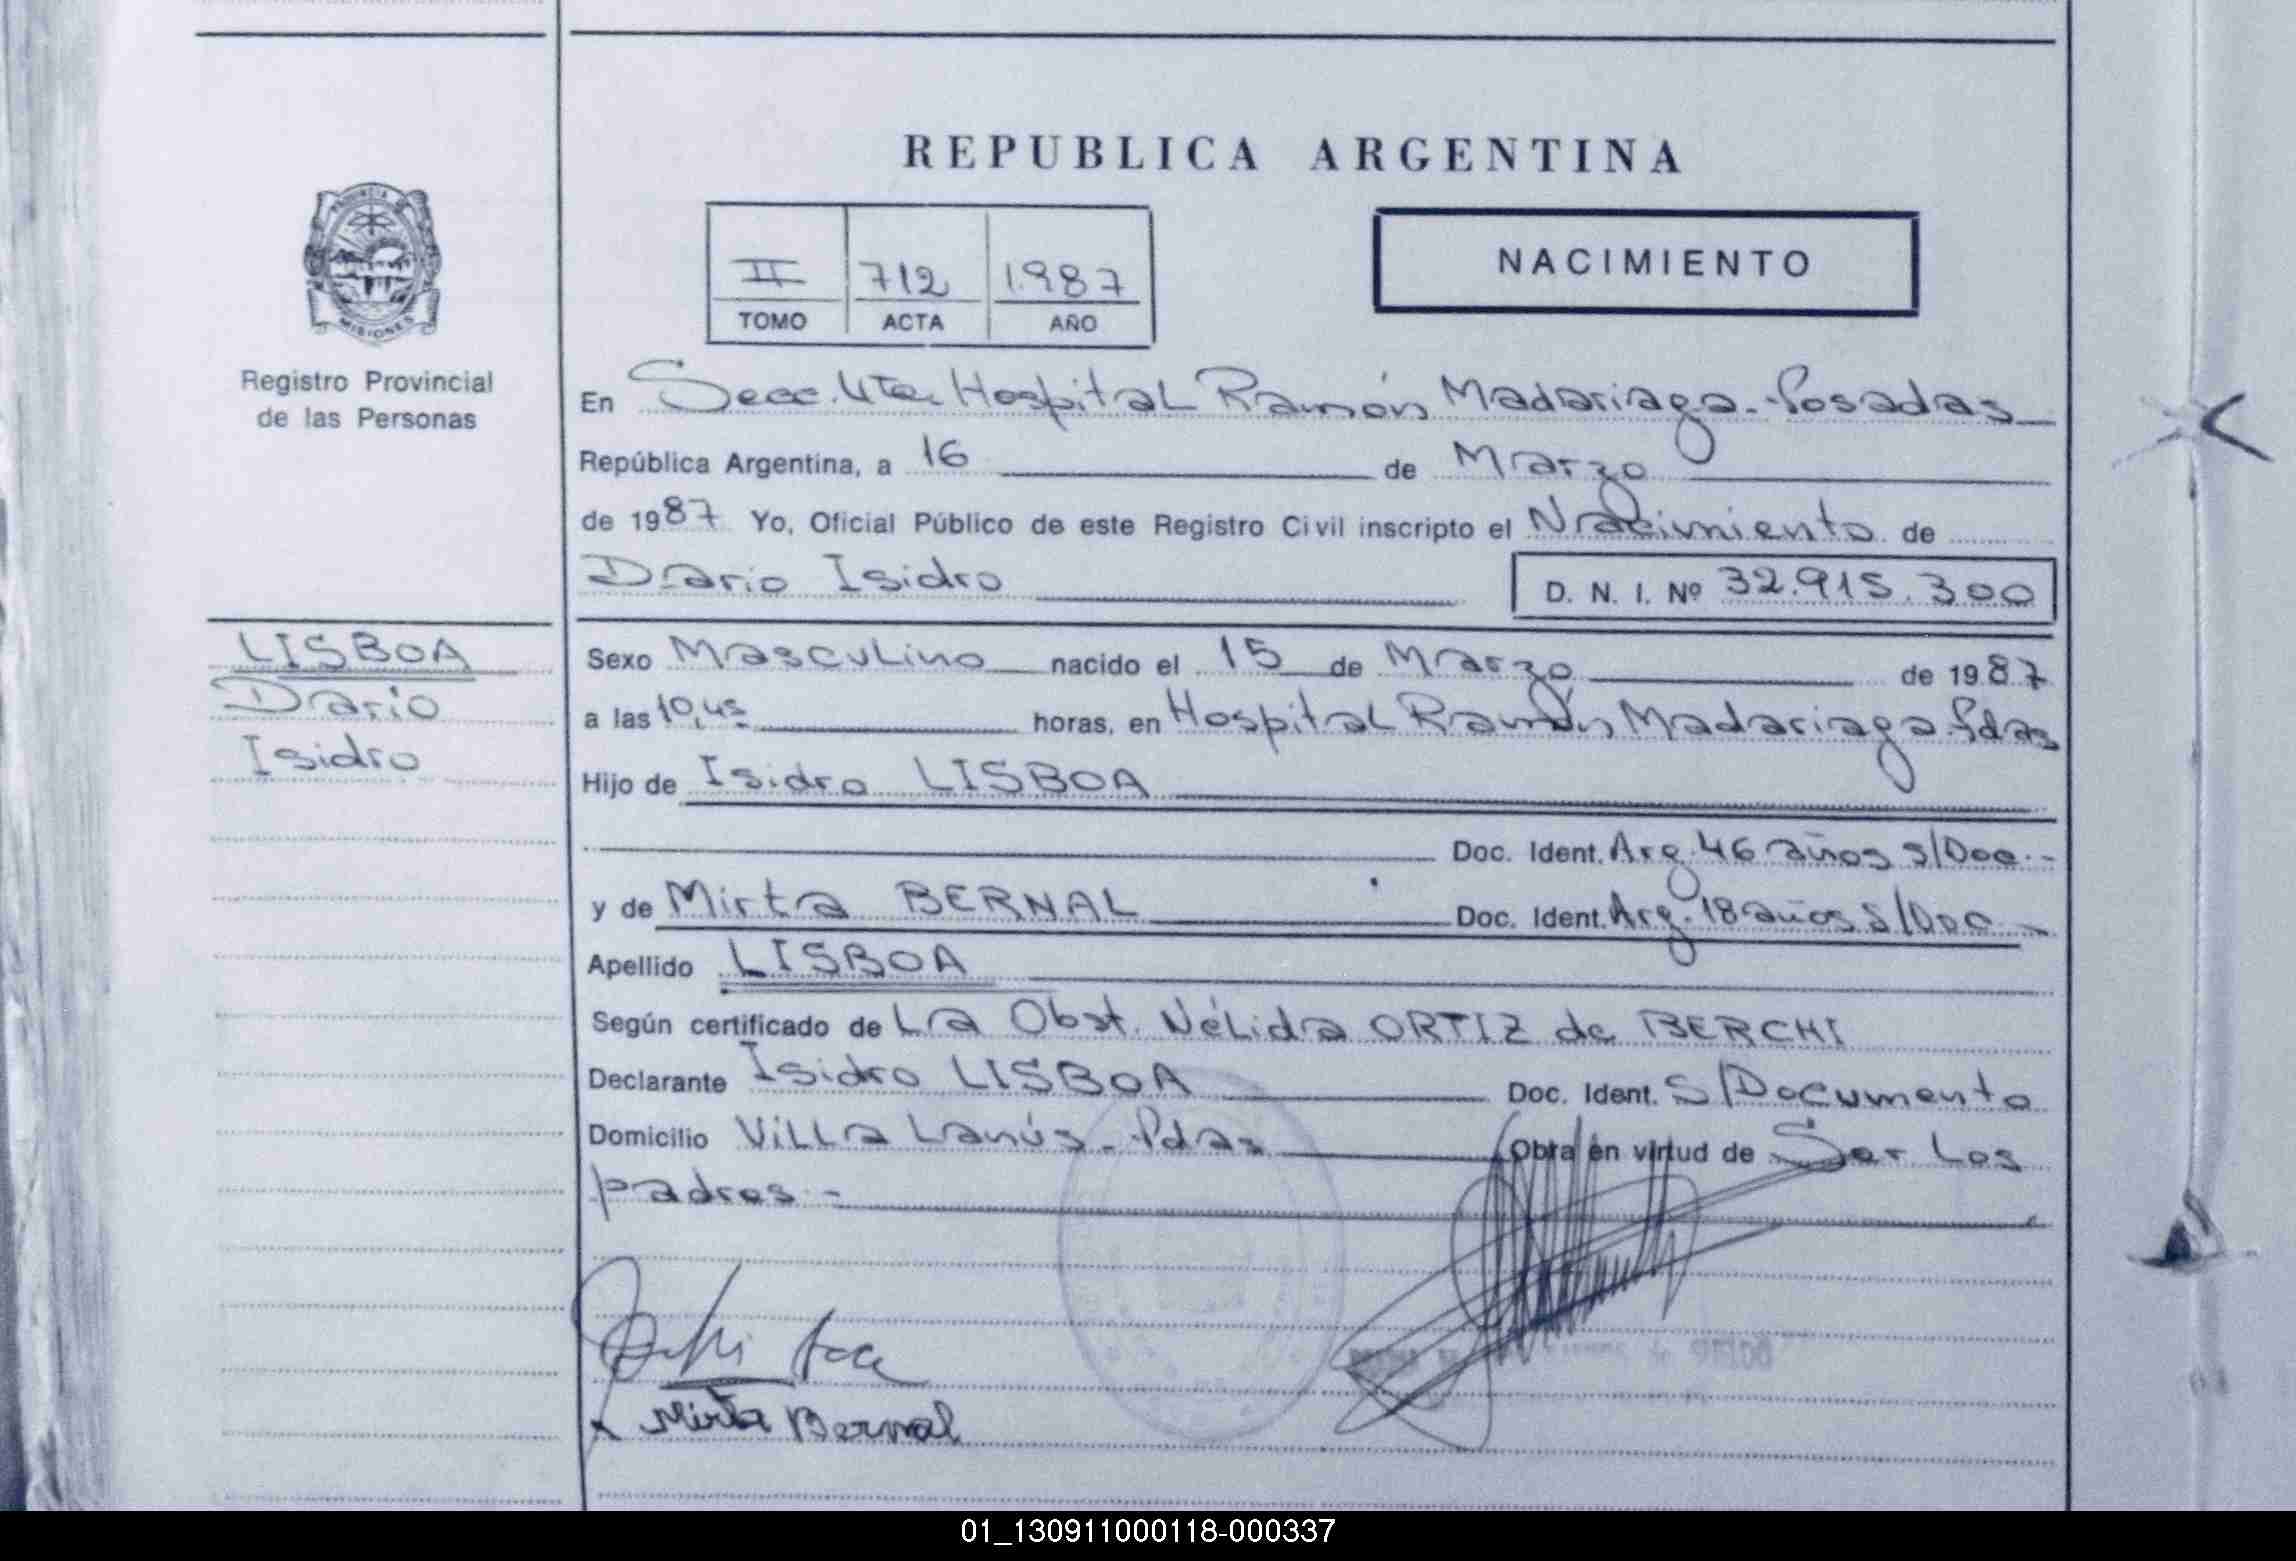 REPUBLICA ARGENTINA
II 712 1.987
TOMO ACTA AÑO
NACIMIENTO
PROVINCIA DE
MISIONES
Registro Provincial
de las Personas
En Secc. 4ta. Hospital Ramón Madariaga - Posadas
República Argentina, a 16 de Marzo
de 1987 Yo, Oficial Público de este Registro Civil inscripto el Nacimiento de
Dario Isidro D. N. I. Nº 32.915.300
LISBOA
Dario
Isidro
Sexo Masculino nacido el 15 de Marzo de 1987
a las 10,45 horas, en Hospital Ramón Madariaga - Pdas
Hijo de Isidro LISBOA
Doc. Ident. Arg. 46 años s/Doc. -
y de Mirta BERNAL Doc. Ident. Arg. 18 años s/Doc -
Apellido LISBOA
Según certificado de La Obst. Nélida ORTIZ de BERCHI
Declarante Isidro LISBOA Doc. Ident. S/Documento
Domicilio Villa Lanús - Pdas Obra en virtud de Ser Los
padres -
Mirta Bernal
01_130911000118-000337